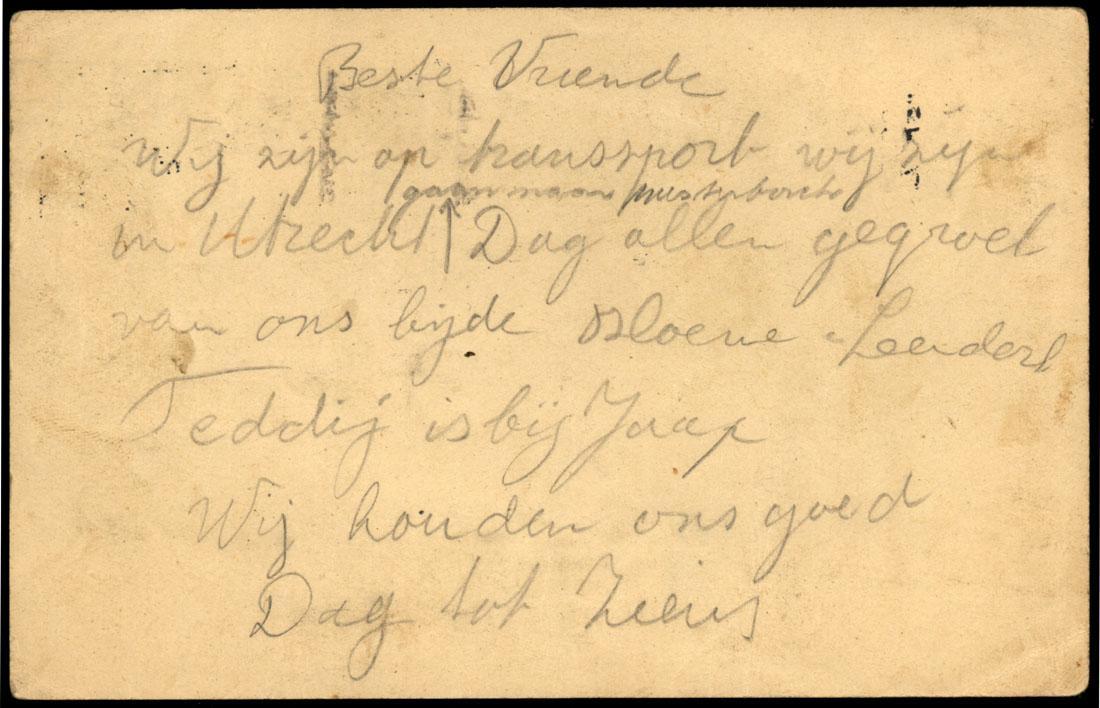 Beste Vriende
Wij zijn op transport wij zijn
gaan naar Westerborck
in Utrecht Dag allen gegroet
van ons bijde Leendert
Teddij is bij Jaap
Wij houden ons goed
Dag tot Ziens